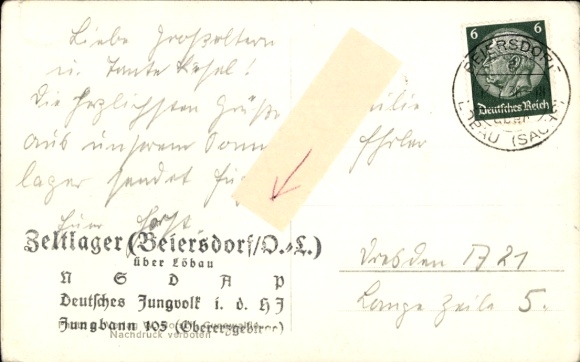 Liebe Großeltern
u. Tante Resel!
Die herzlichsten Grüße
aus unserem
lager sendet
Euer Horst.
Zeltlager (Beiersdorf/O.-L.)
über Löbau
N S D A P
Deutsches Jungvolk i. d. HJ
Jungbann 105 (Obererzgebirge)
Nachdruck verboten
6 6
Deutsches Reich
BEIERSDORF
LÖBAU (SACHS)
Familie
Dresden A 21
Lange Zeile 5.